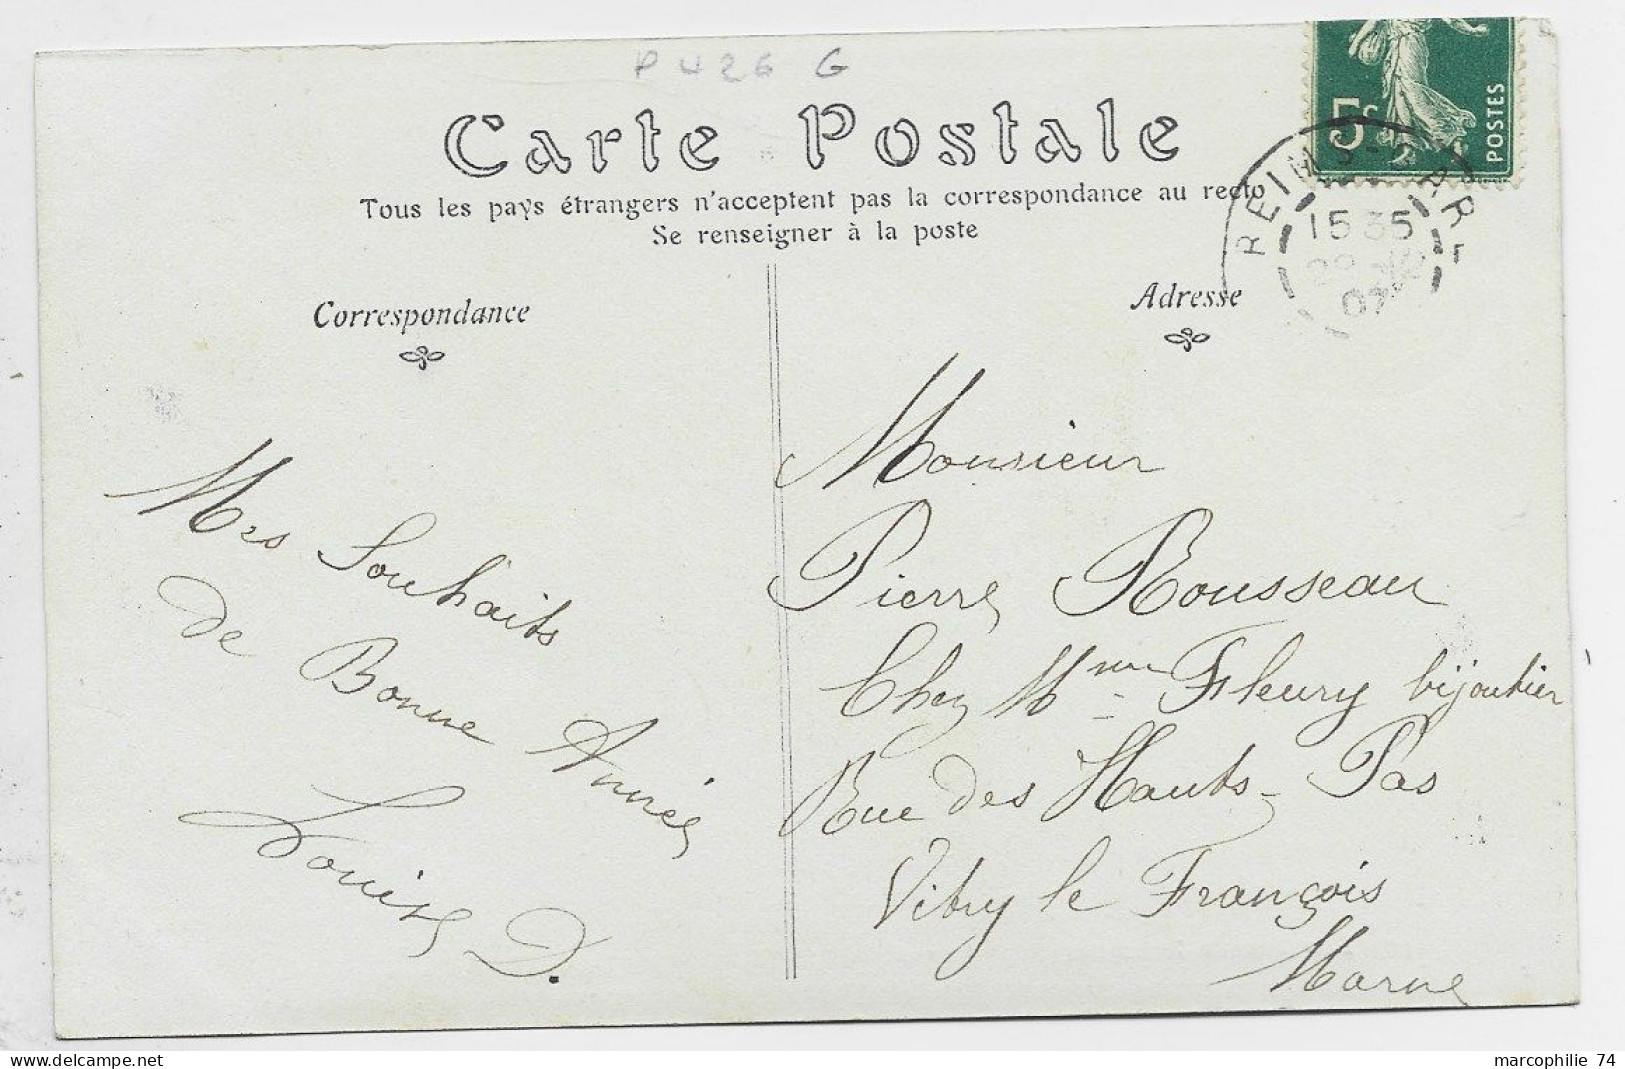 P U 26 G
Carte Postale
Tous les pays étrangers n'acceptent pas la correspondance au recto
Se renseigner à la poste
5c
POSTES
REIMS-GARE
15 35
07
Correspondance
Adresse
Mes Souhaits
de Bonne Année
Louise D.
Monsieur
Pierre Rousseau
Chez Mme Fleury bijoutier
Rue des Hauts-Pas
Vitry le François
Marne
marcophilie 74